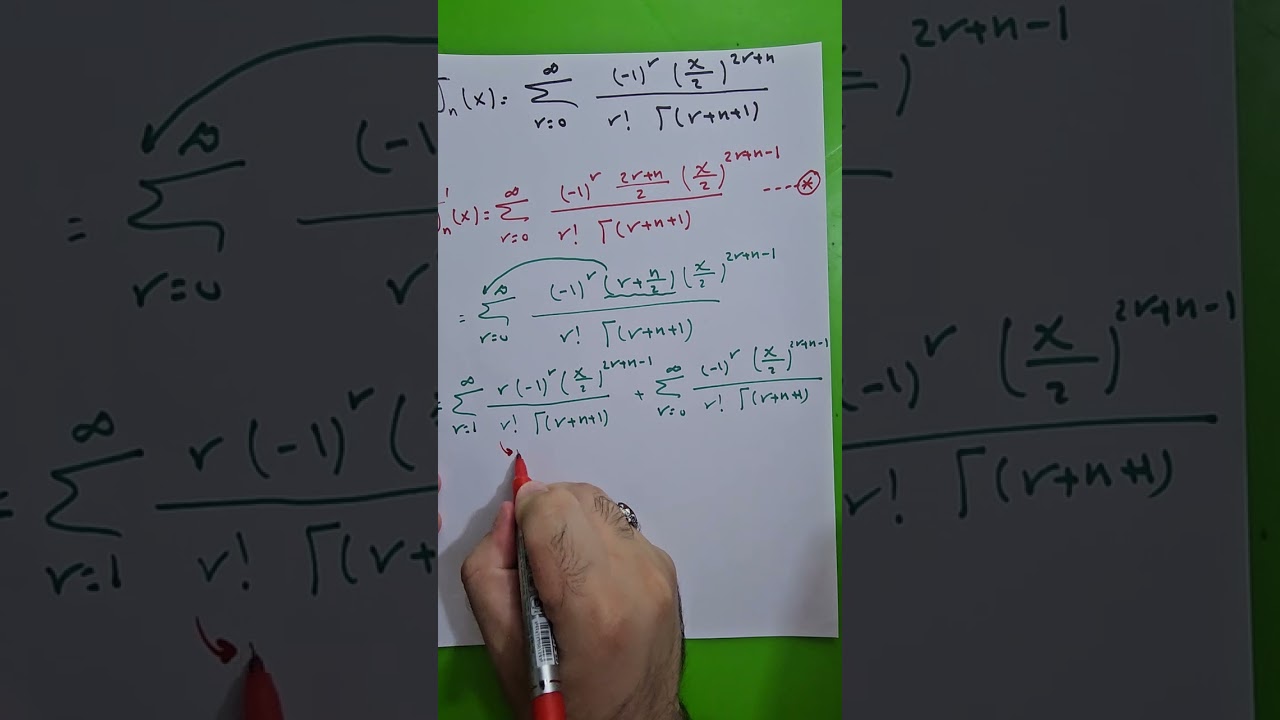 J_n(x) = \sum_{r=0}^{\infty} \frac{(-1)^r (\frac{x}{2})^{2r+n}}{r! Γ(r+n+1)}
J'_n(x) = \sum_{r=0}^{\infty} \frac{(-1)^r \frac{2r+n}{2} (\frac{x}{2})^{2r+n-1}}{r! Γ(r+n+1)} ----⊛
= \sum_{r=0}^{\infty} \frac{(-1)^r (r+\frac{n}{2}) (\frac{x}{2})^{2r+n-1}}{r! Γ(r+n+1)}
= \sum_{r=1}^{\infty} \frac{r(-1)^r (\frac{x}{2})^{2r+n-1}}{r! Γ(r+n+1)} + \sum_{r=0}^{\infty} \frac{(-1)^r (\frac{x}{2})^{2r+n-1}}{r! Γ(r+n+1)}